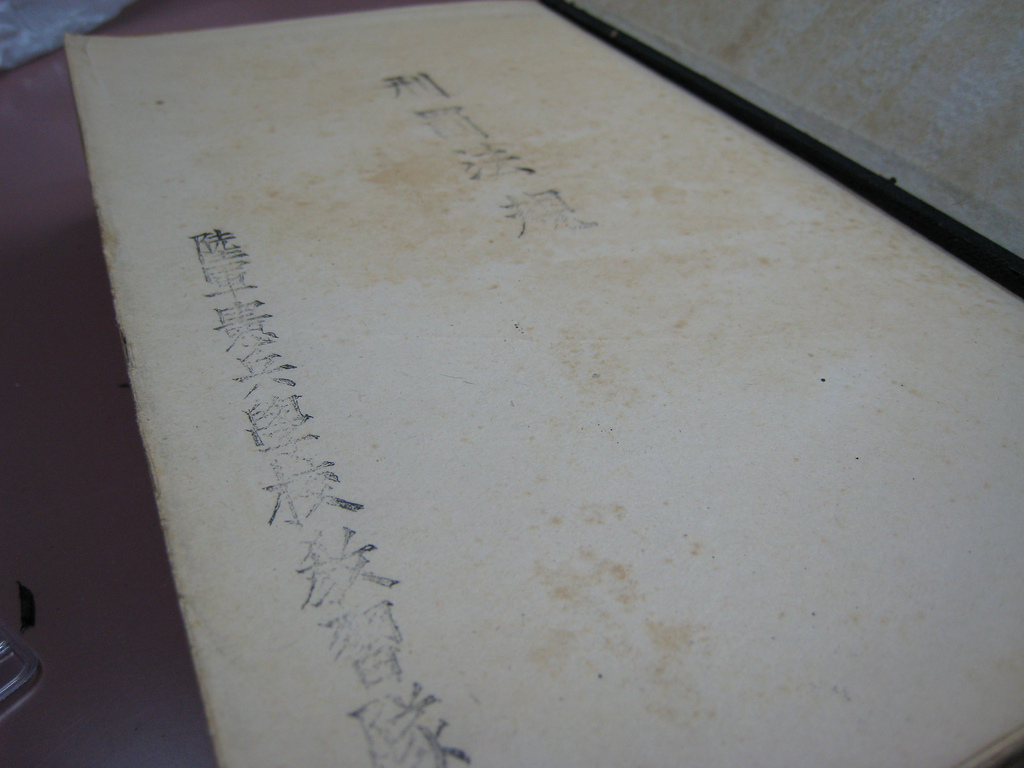 刑罰法規
陸軍憲兵學校教習隊